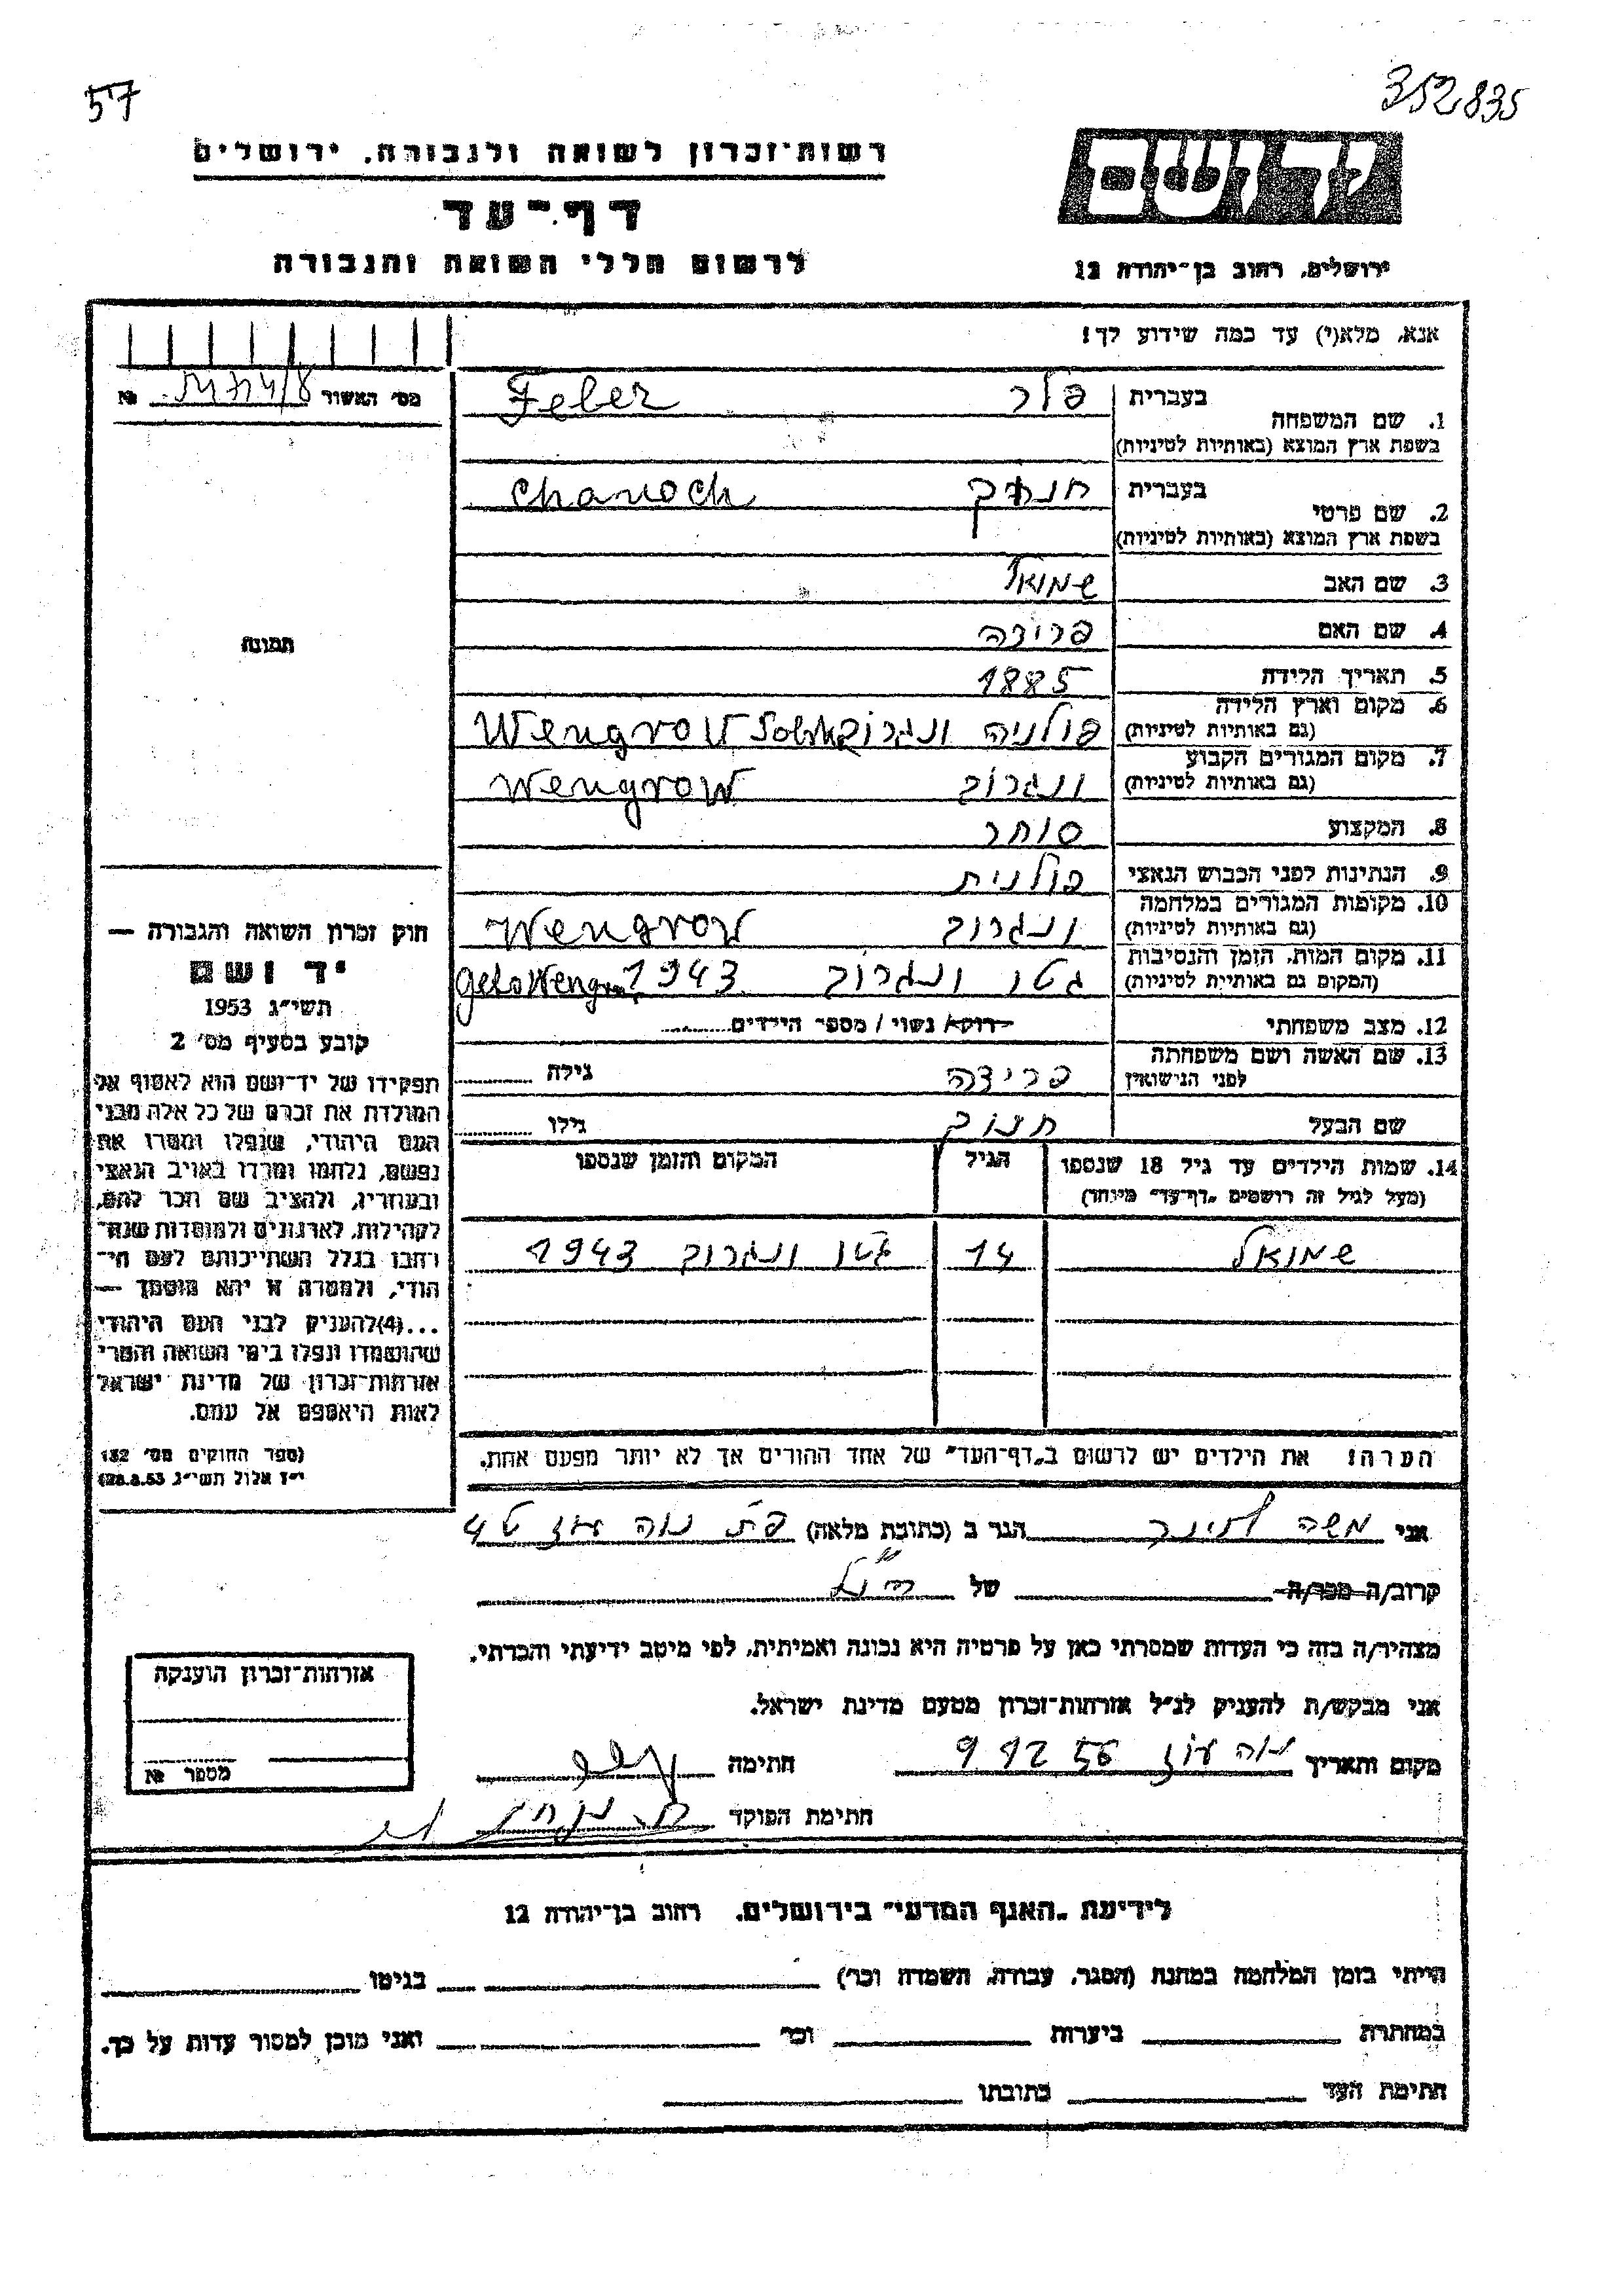 57
352835
רשות־זכרון לשואה ולגבורה, ירושלים
דף־עד
לרשום חללי השואה והגבורה
יד ושם
ירושלים, רחוב בן־יהודה 12
אנא, מלא(י) עד כמה שידוע לך!
מס׳ האשור №
1. שם המשפחה בעברית פלר Feler
בשפת ארץ המוצא (באותיות לטיניות)
2. שם פרטי בעברית חנוך Chanoch
בשפת ארץ המוצא (באותיות לטיניות)
3. שם האב שמואל
4. שם האם פרידה
5. תאריך הלידה 1885
6. מקום וארץ הלידה פולניה ונגרוב Wengrow Polska
(גם באותיות לטיניות)
7. מקום המגורים הקבוע ונגרוב Wengrow
(גם באותיות לטיניות)
8. המקצוע סוחר
9. הנתינות לפני הכבוש הנאצי פולנית
10. מקומות המגורים במלחמה ונגרוב Wengrow
(גם באותיות לטיניות)
11. מקום המות, הזמן והנסיבות גטו ונגרוב 1943 geto Wengrow
(המקום גם באותיות לטיניות)
12. מצב משפחתי רוק/ נשוי / מספר הילדים
13. שם האשה ושם משפחתה פרידה גילה
לפני הנישואין
שם הבעל חנוך גילו
14. שמות הילדים עד גיל 18 שנספו הגיל המקום והזמן שנספו
(מעל לגיל זה רושמים „דף־עד״ מיוחד)
שמואל 14 גטו ונגרוב 1943
הערה: את הילדים יש לרשום ב„דף־העד״ של אחד ההורים אך לא יותר מפעם אחת.
תמונה
חוק זכרון השואה והגבורה —
יד ושם
תשי״ג 1953
קובע בסעיף מס׳ 2
תפקידו של יד־ושם הוא לאסוף אל
המולדת את זכרם של כל אלה מבני
העם היהודי, שנפלו ומסרו את
נפשם, נלחמו ומרדו באויב הנאצי
ובעוזריו, ולהציב שם וזכר להם,
לקהילות, לארגונים ולמוסדות שנח־
רבו בגלל השתייכותם לעם הי־
הודי, ולמטרה זו יהא מוסמך —
...(4)להעניק לבני העם היהודי
שהושמדו ונפלו בימי השואה והמרי
אזרחות־זכרון של מדינת ישראל
לאות היאספם אל עמם.
(ספר החוקים מס׳ 132
י״ז אלול תשי״ג 28.8.53)
אני משה הגר ב (כתובת מלאה) פ״ת נוה עוז 4
קרוב/ה מכר/ה של הנ״ל
מצהיר/ה בזה כי העדות שמסרתי כאן על פרטיה היא נכונה ואמיתית, לפי מיטב ידיעתי והכרתי.
אני מבקש/ת להעניק לנ״ל אזרחות־זכרון מטעם מדינת ישראל.
מקום ותאריך נוה עוז 9 12 56 חתימה
חתימת הפוקד
אזרחות־זכרון הוענקה
מספר №
לידיעת „האגף המדעי״ בירושלים, רחוב בן־יהודה 12
הייתי בזמן המלחמה במחנה (הסגר, עבודה, השמדה וכו׳) בגיטו
במחתרת ביערות וכו׳ ואני מוכן למסור עדות על כך.
חתימת העד כתובתו